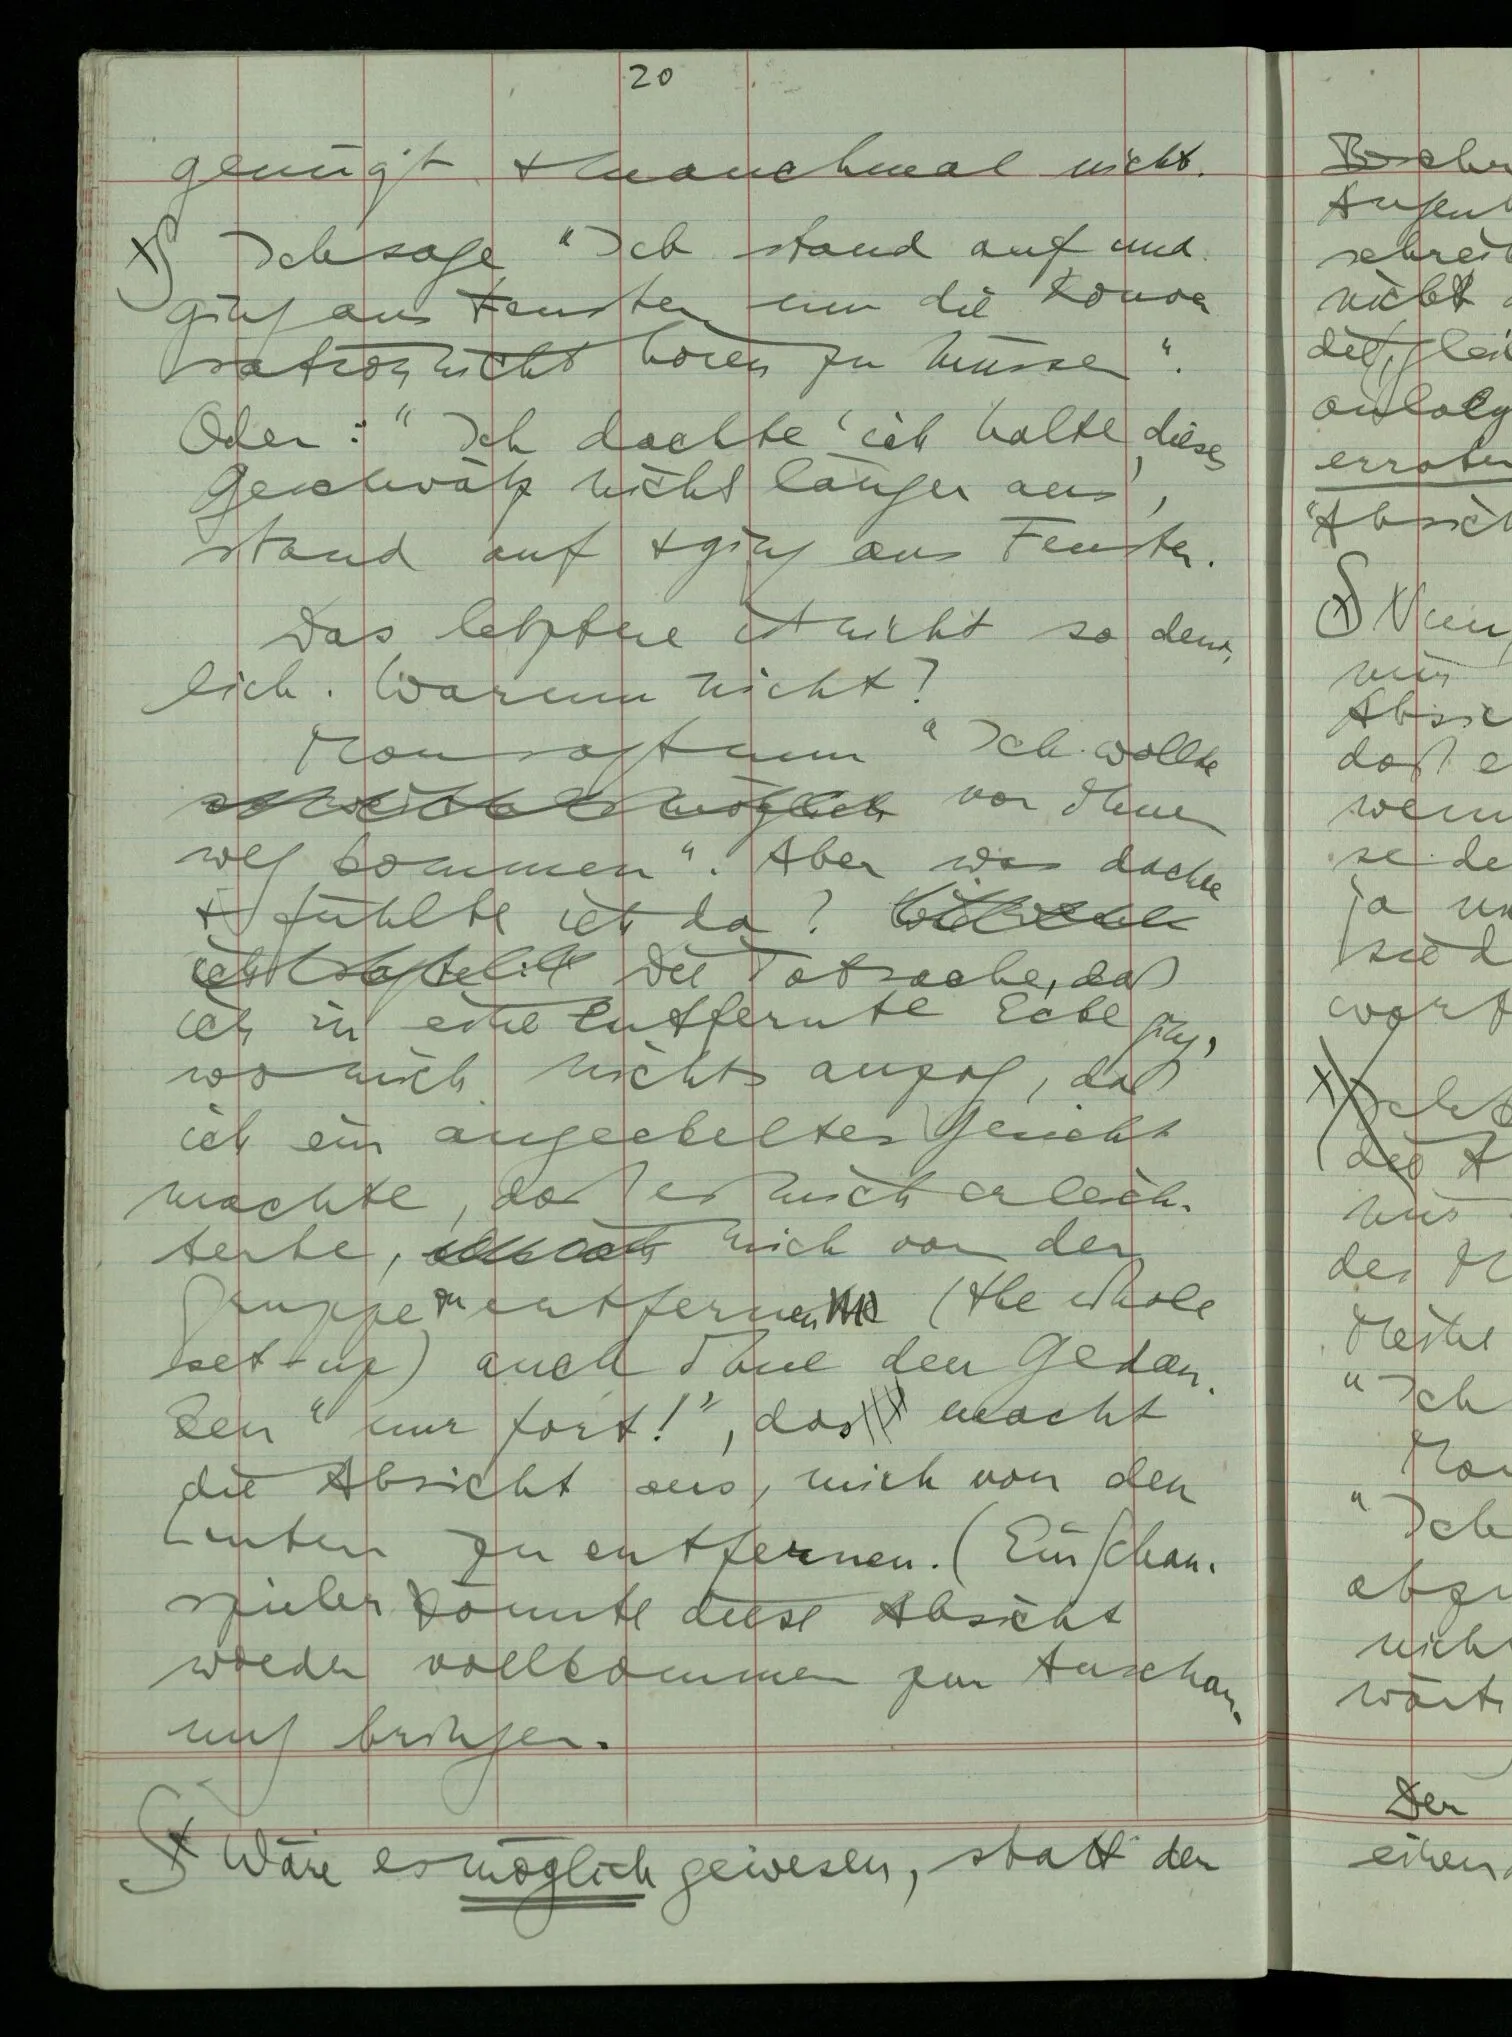 20
genügt & manchmal nicht.
§ Ich sage "Ich stand auf und
ging ans Fenster um die Konver
sation nicht hören zu müssen".
Oder: "Ich dachte 'ich halte dieses
Geschwätz nicht länger aus',
stand auf & ging ans Fenster.
Das letztere ist nicht so deut-
lich. Warum nicht?
Man sagt nun "Ich wollte
so weit als möglich von ihnen
weg kommen". Aber was dachte
& fühlte ich da?
Die Tatsache, daß
ich in eine entfernte Ecke ging,
wo mich nichts anzog, daß
ich ein angeekeltes Gesicht
machte, daß es mich erleich-
terte, mich von der
Gruppe zu entfernen (the whole
set-up) auch ohne den Gedan-
ken "nur fort!", das macht
die Absicht aus, mich von den
Leuten zu entfernen. (Ein Schau-
spieler könnte diese Absicht
wieder vollkommen zur Anschau-
ung bringen.
§ Wäre es möglich gewesen, statt der
Beschr
Augenb
schreib
nicht
die, glei
analog
erraten
"Absich
§ Nun,
mir
Absic
daß e
wenn
se de
ja un
sie d
wort
die A
mir
des M
Meine
"Ich
Man
"Ich
abzu
nich
wärt
Der
einen